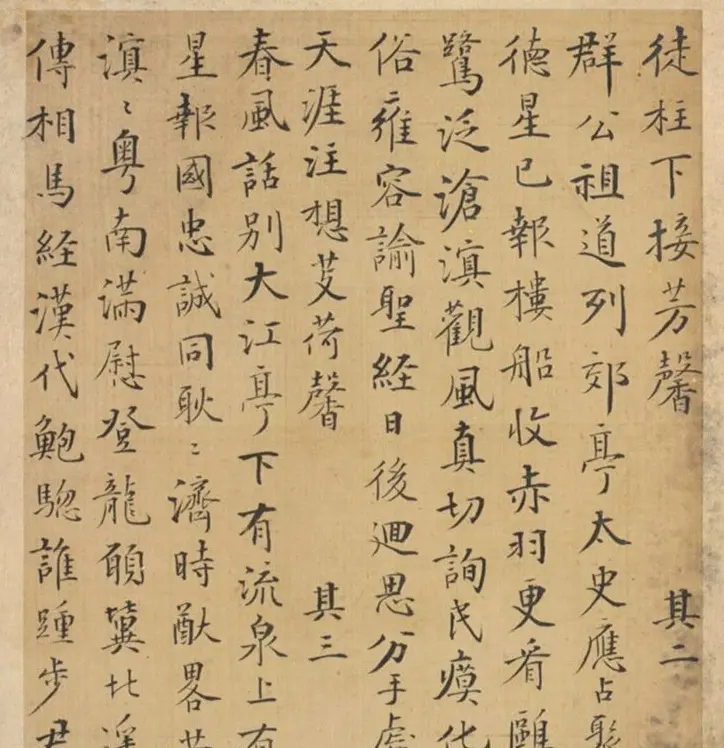 徒柱下接芳馨 其二
群公祖道列郊亭太史應占聚
德星已報樓船收赤羽更看鷗
鷺泛滄溟觀風真切詢民瘼化
俗雍容諭聖經日後迴思分手處
天涯注想芰荷馨 其三
春風話別大江亭下有流泉上有
星報國忠誠同耿〻濟時猷畧
滇〻粵南滿慰登龍願冀北
傳相馬經漢代鮑驄誰踵步君